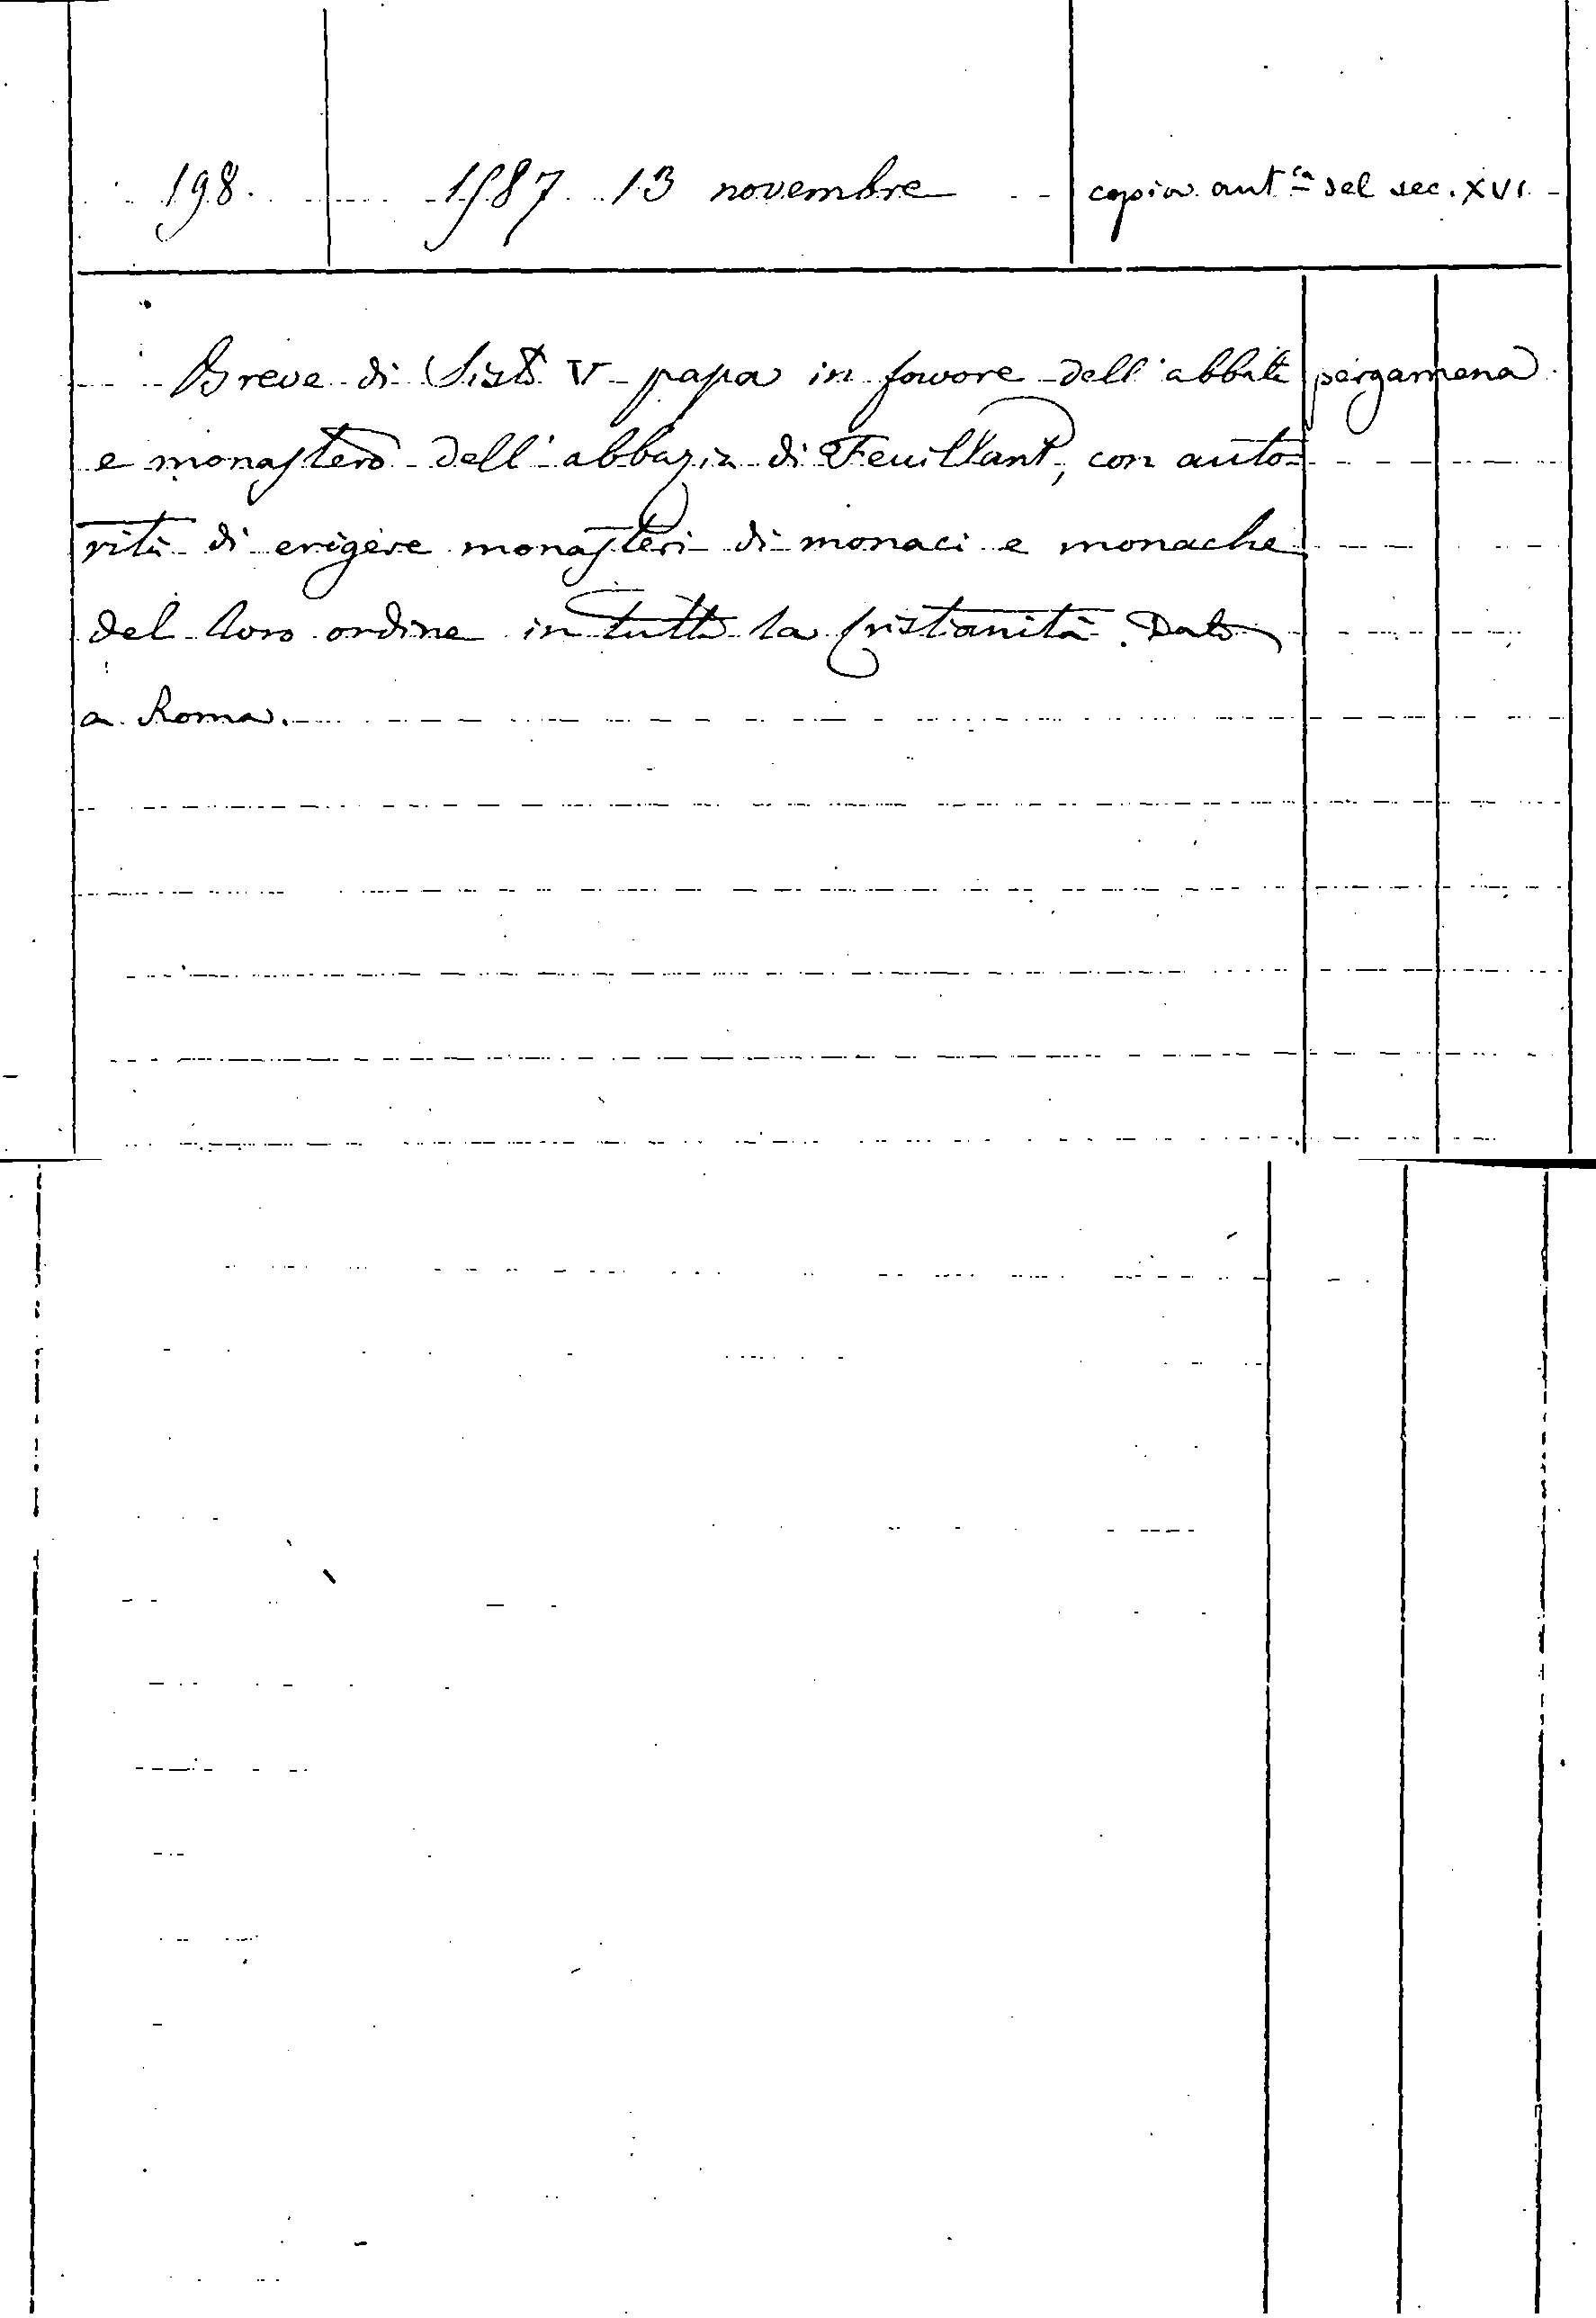 198. 1587 13 novembre copia aut.ca del sec. XVI
Breve di Sisto V papa in favore dell'abbate pergamena
e monastero dell'abbazia di Feuillant, con auto=
rità di erigere monasteri di monaci e monache
del loro ordine in tutta la cristianità. Dato
a Roma.